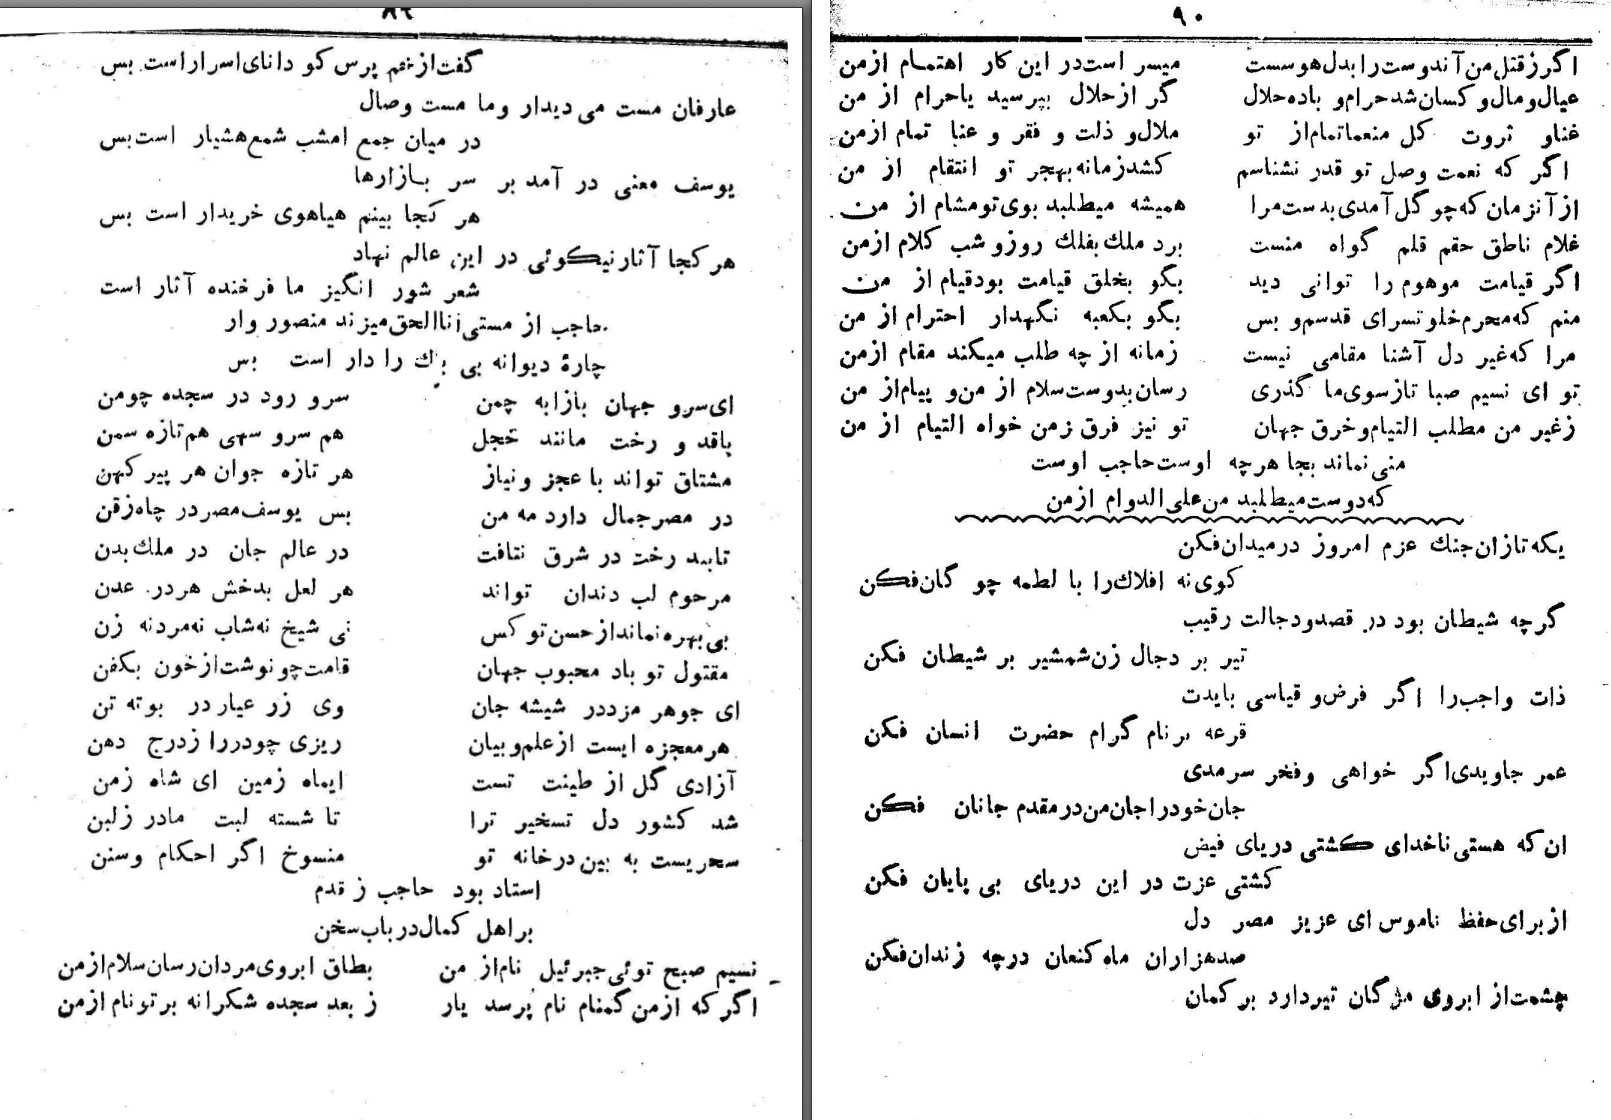 ۸۹
گفت از غم پرس کو دانای اسرار است بس
عارفان مست می دیدار و ما مست وصال
در میان جمع امشب شمع هشیار است بس
یوسف معنی در آمد بر سر بازارها
هر کجا بینم هیاهوی خریدار است بس
هر کجا آثار نیکوئی در این عالم نهاد
شعر شور انگیز ما فرخنده آثار است
حاجب از مستی انا الحق میزند منصور وار
چارهٔ دیوانه بی باك را دار است بس
ای سرو جهان بازا به چمن سرو رود در سجده چو من
باقد و رخت مانند خجل هم سرو سهی هم تازه سمن
مشتاق تواند با عجز و نیاز هر تازه جوان هر پیر کهن
در مصر جمال دارد مه من بس یوسف مصر در چاه زقن
تابید رخت در شرق نتافت در عالم جان در ملك بدن
مرحوم لب دندان تواند هر لعل بدخش هر در عدن
بی بهره نماند از حسن تو کس نی شیخ نه شاب نه مرد نه زن
مقتول تو باد محبوب جهان قامت چو نوشت از خون بکفن
ای جوهر مزد در شیشه جان وی زر عیار در بوته تن
هر معجزه ایست از علم و بیان ریزی چو در را ز درج دهن
آزادی گل از طینت تست ایماه زمین ای شاه زمن
شد کشور دل تسخیر ترا تا شسته لبت مادر ز لبن
سحریست به بین در خانه تو منسوخ اگر احکام و سنن
استاد بود حاجب ز قدم
بر اهل کمال در باب سخن
نسیم صبح توئی جبرئیل نام از من بطاق ابروی مردان رسان سلام از من
اگر که از من گمنام نام پرسد یار ز بعد سجده شکرانه بر تو نام از من
۹۰
اگر ز قتل من آندوست را بدل هوسست میسر است در این کار اهتمام از من
عیال و مال و کسان شد حرام و باده حلال گر از حلال بپرسید یا حرام از من
غناو ثروت کل منعما تمام از تو ملال و ذلت و فقر و عنا تمام از من
اگر که نعمت وصل تو قدر نشناسم کشد زمانه بهجر تو انتقام از من
از آنزمان که چو گل آمدی بدست مرا همیشه میطلبد بوی تو مشام از من
غلام ناطق حقم قلم گواه منست برد ملك بفلك روز و شب کلام از من
اگر قیامت موهوم را توانی دید بگو بخلق قیامت بود قیام از من
منم که محرم خلوتسرای قدسم و بس بگو بکعبه نگهدار احترام از من
مرا که غیر دل آشنا مقامی نیست زمانه از چه طلب میکند مقام از من
تو ای نسیم صبا تا ز سوی ما گذری رسان بدوست سلام از من و پیام از من
ز غیر من مطلب التیام و خرق جهان تو نیز فرق ز من خواه التیام از من
منی نماند بجا هر چه اوست حاجب اوست
که دوست میطلبد من علی الدوام از من
یکه تازان جنك عزم امروز در میدان فکن
کوی نه افلاك را با لطمه چو گان فکن
گرچه شیطان بود در قصد و دجالت رقیب
تیر بر دجال زن شمشیر بر شیطان فکن
ذات واجب را اگر فرض و قیاسی بایدت
قرعه بر نام گرام حضرت انسان فکن
عمر جاویدی اگر خواهی و فخر سرمدی
جان خود را جان من در مقدم جانان فکن
ان که هستی ناخدای کشتی دریای فیض
کشتی عزت در این دریای بی پایان فکن
از برای حفظ ناموس ای عزیز مصر دل
صد هزاران ماه کنعان در چه زندان فکن
چشمت از ابروی مژگان تیر دارد بر کمان